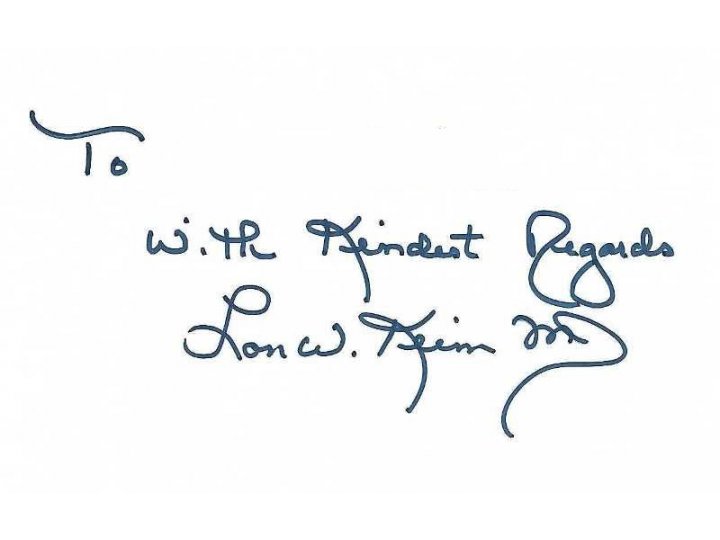 To
With Kindest Regards
Lon W. Keim MD